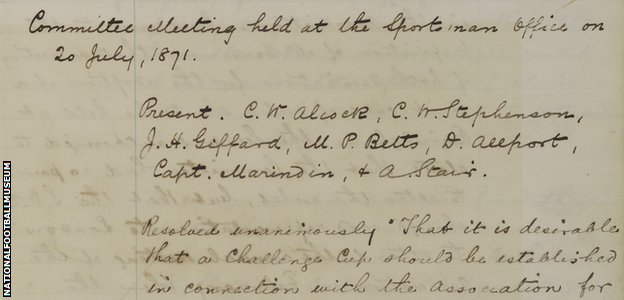 Committee Meeting held at the Sportsman Office on
20 July, 1871.
Present. C. W. Alcock, C. W. Stephenson,
J. H. Giffard, M. P. Betts, D. Allport,
Capt. Marindin, & A. Stair.
Resolved unanimously "That it is desirable
that a Challenge Cup should be established
in connection with the Association for
NATIONALFOOTBALLMUSEUM